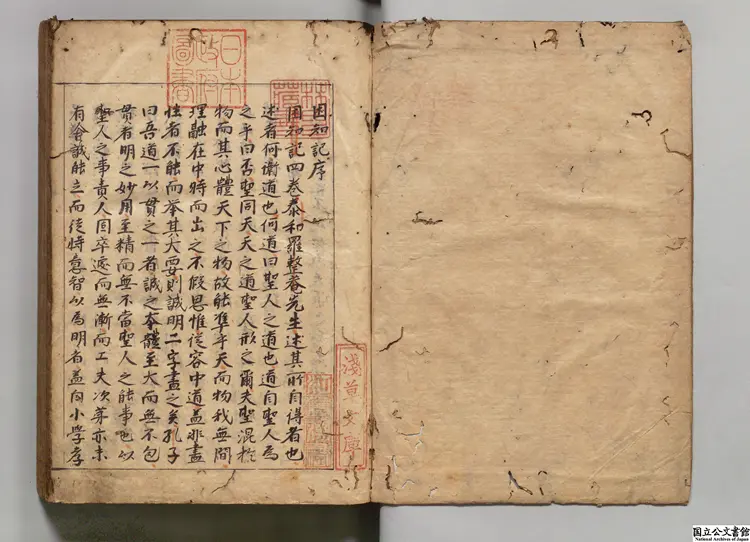 困知記序
困知記四卷泰和羅整菴先生述其所自得者也
述者何衛道也何道曰聖人之道也道自聖人爲
之乎曰否聖同天天之道聖人形之爾夫聖混於
物而其心體天下之物故能準乎天而物我無間
理融在中時而出之不假思惟從容中道蓋非盡
性者不能而举其大要則誠明二字盡之矣孔子
曰吾道一以貫之一者誠之本體至大而無不包
貫者明之妙用至精而無不當聖人之能事也以
聖人之事責人固卒遽而無漸而工夫次第亦未
有舍誠能立而徒恃意智以爲明者蓋自小學孝
日本
政府
圖書
淺草文庫
国立公文書館
National Archives of Japan